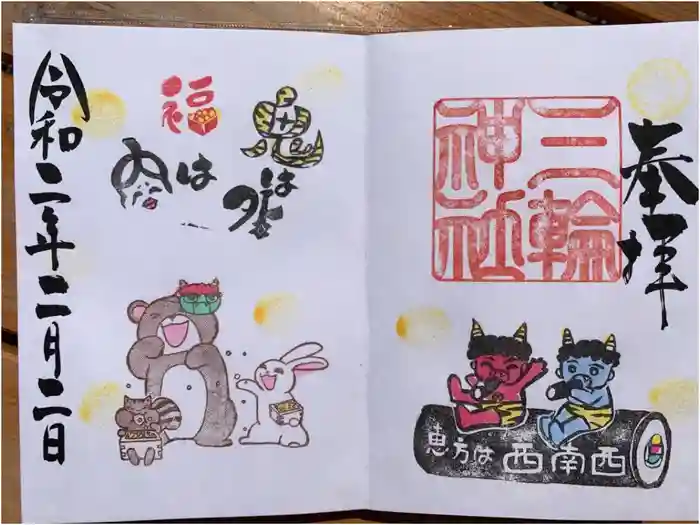 奉拝
三輪
神社
恵方は 西南西
鬼は
外
福
は
内
令和二年二月二日